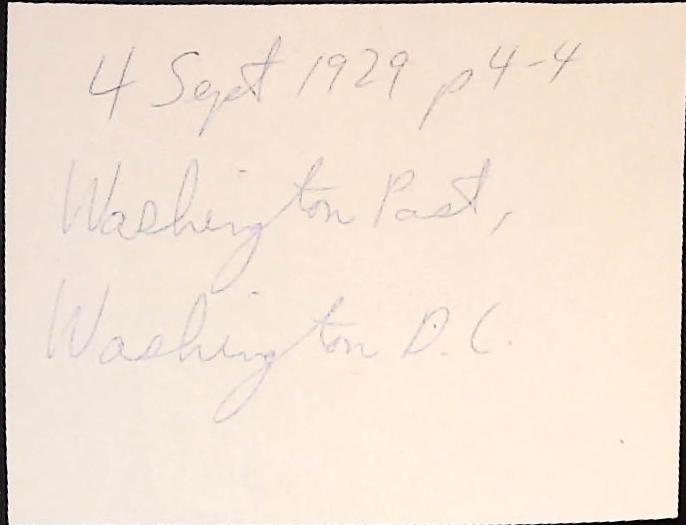 4 Sept 1929 p 4-4
Washington Post,
Washington D.C.